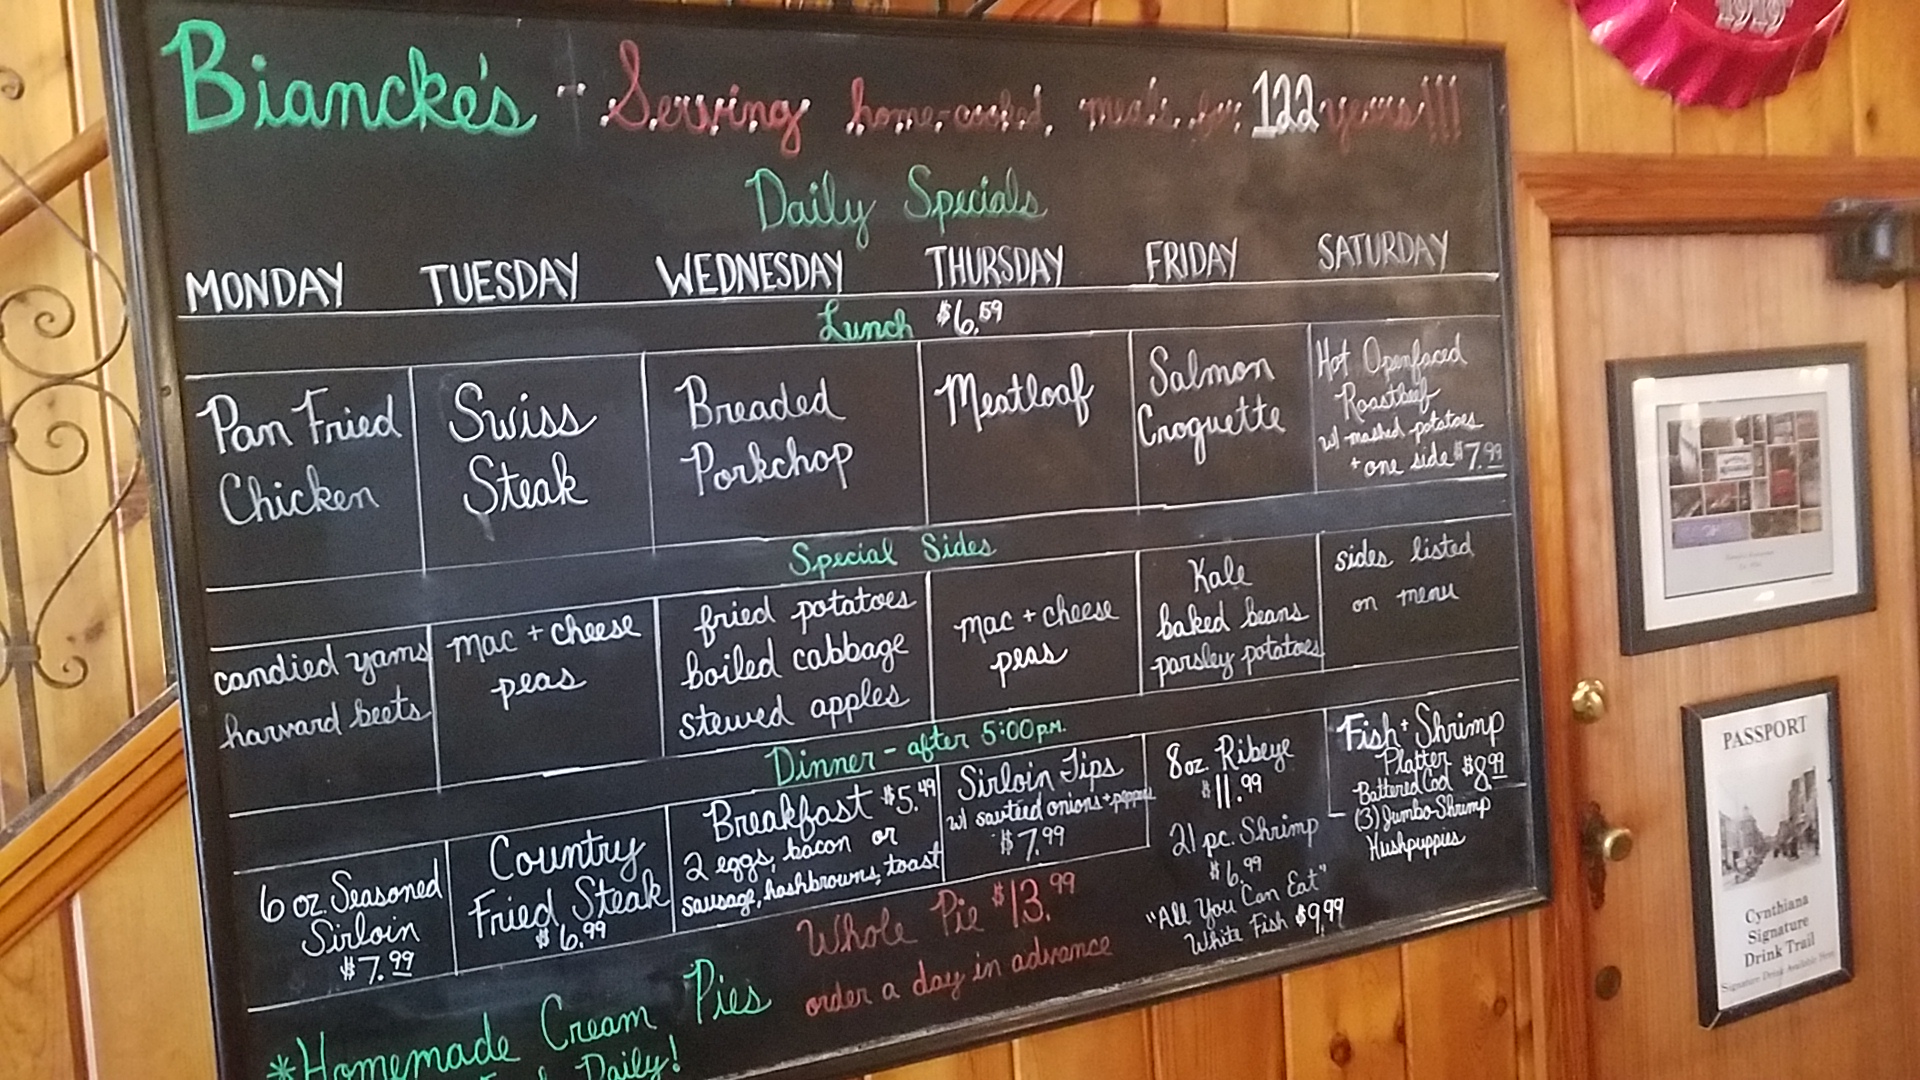 1919
Biancke's - Serving home-cooked meals for 122 years!!!
Daily Specials
MONDAY TUESDAY WEDNESDAY THURSDAY FRIDAY SATURDAY
Lunch $6.59
Pan Fried
Chicken
Swiss
Steak
Breaded
Porkchop
Meatloaf
Salmon
Croquette
Hot Openfaced
Roastbeef
w/ mashed potatoes
+ one side $7.99
Special Sides
candied yams
harvard beets
mac + cheese
peas
fried potatoes
boiled cabbage
stewed apples
mac + cheese
peas
Kale
baked beans
parsley potatoes
sides listed
on menu
Dinner - after 5:00 p.m.
6 oz. Seasoned
Sirloin
$7.99
Country
Fried Steak
$6.99
Breakfast $5.49
2 eggs, bacon or
sausage, hashbrowns, toast
Sirloin Tips
w/ sauteed onions + peppers
$7.99
8oz. Ribeye
$11.99
21 pc. Shrimp
$6.99
"All You Can Eat"
White Fish $9.99
Fish + Shrimp
Platter $8.99
Battered Cod
(3) Jumbo Shrimp
Hushpuppies
Whole Pie $13.99
order a day in advance
*Homemade Cream Pies
Daily!
PASSPORT
Cynthiana
Signature
Drink Trail
Signature Drink Available Here